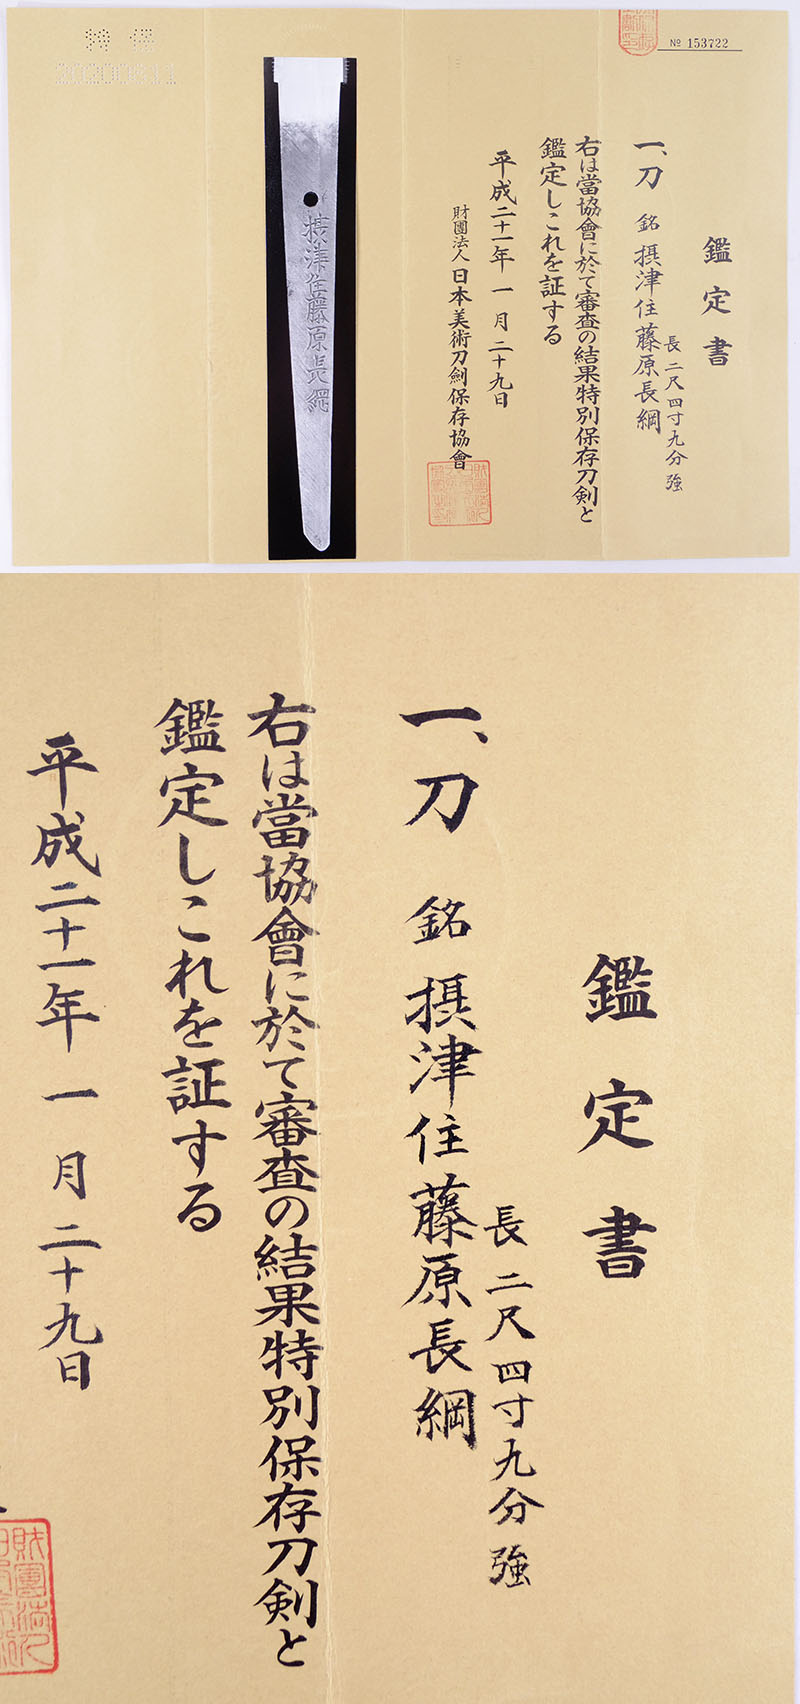 No 153722
鑑定書
一、刀 銘 摂津住藤原長綱
長 二尺四寸九分強
右は當協會に於て審査の結果特別保存刀剣と
鑑定しこれを証する
平成二十一年 一月 二十九日
財團法人 日本美術刀劍保存協會
摂津住藤原長綱
鑑定書
一、刀 銘 摂津住藤原長綱
長 二尺四寸九分強
右は當協會に於て審査の結果特別保存刀剣と
鑑定しこれを証する
平成二十一年 一月 二十九日